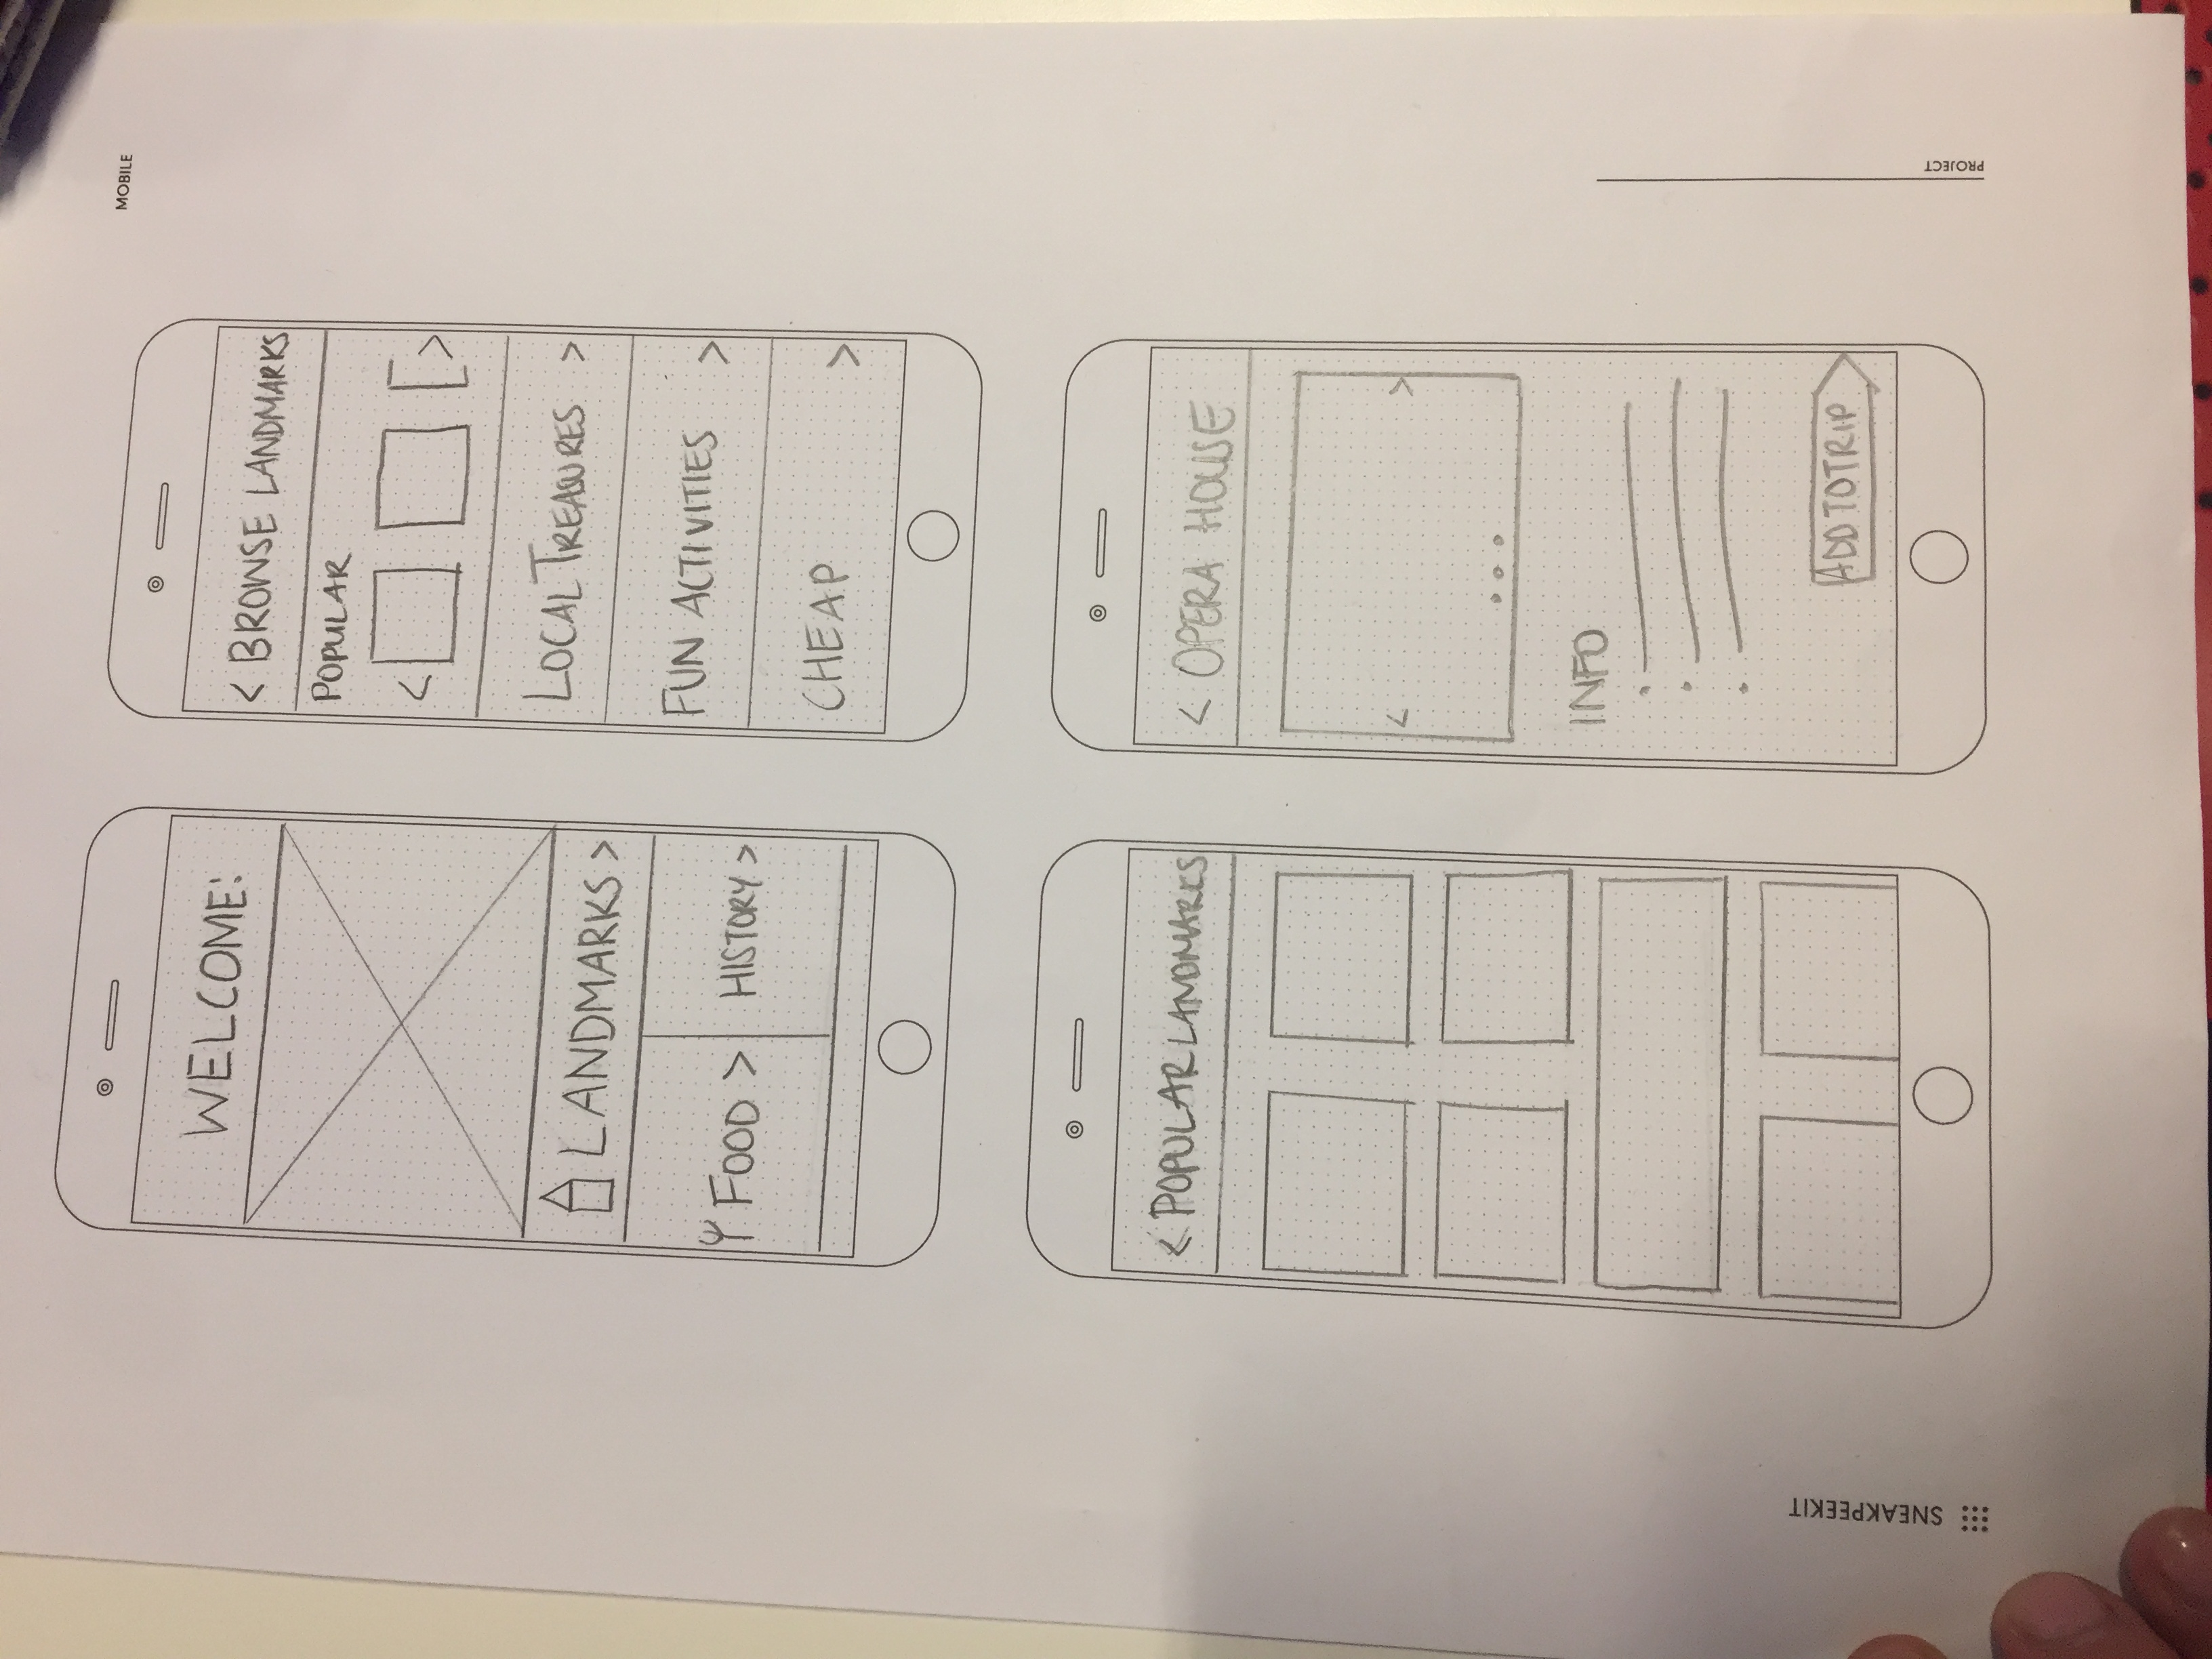 MOBILE
WELCOME:
LANDMARKS >
FOOD >
HISTORY >
< BROWSE LANDMARKS
POPULAR
< >
LOCAL TREASURES >
FUN ACTIVITIES >
CHEAP >
< POPULAR LANDMARKS
< OPERA HOUSE
< >
INFO
ADD TO TRIP
SNEAKPEEKIT
PROJECT